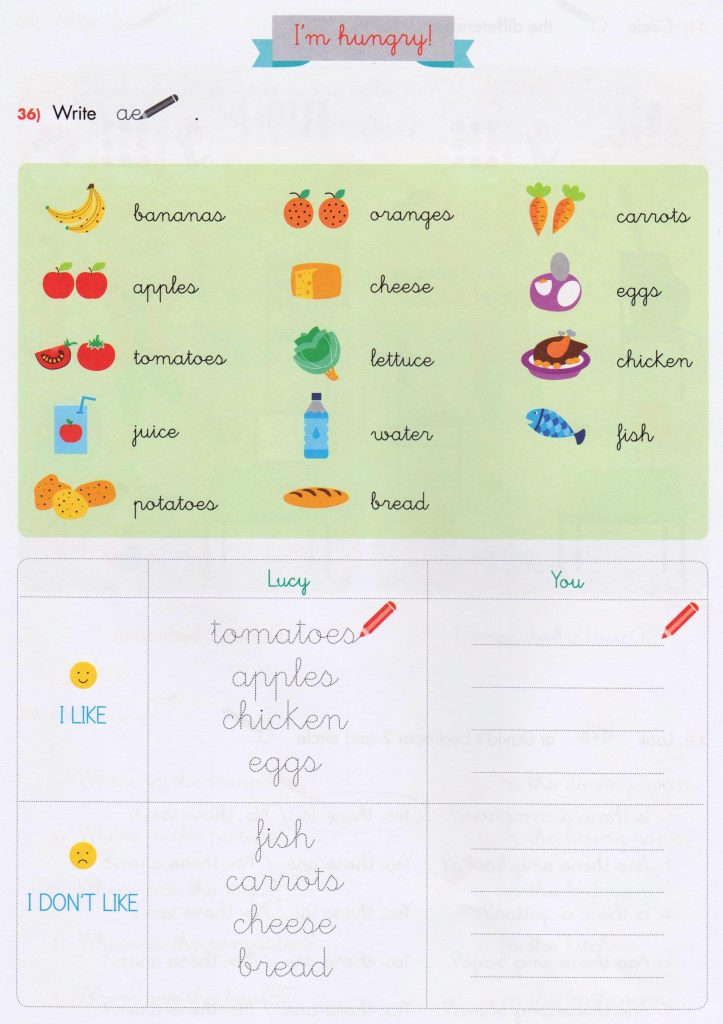 I'm hungry!
36) Write ae .
bananas oranges carrots
apples cheese eggs
tomatoes lettuce chicken
juice water fish
potatoes bread
Lucy You
tomatoes
apples
I LIKE
chicken
eggs
fish
carrots
I DON'T LIKE
cheese
bread